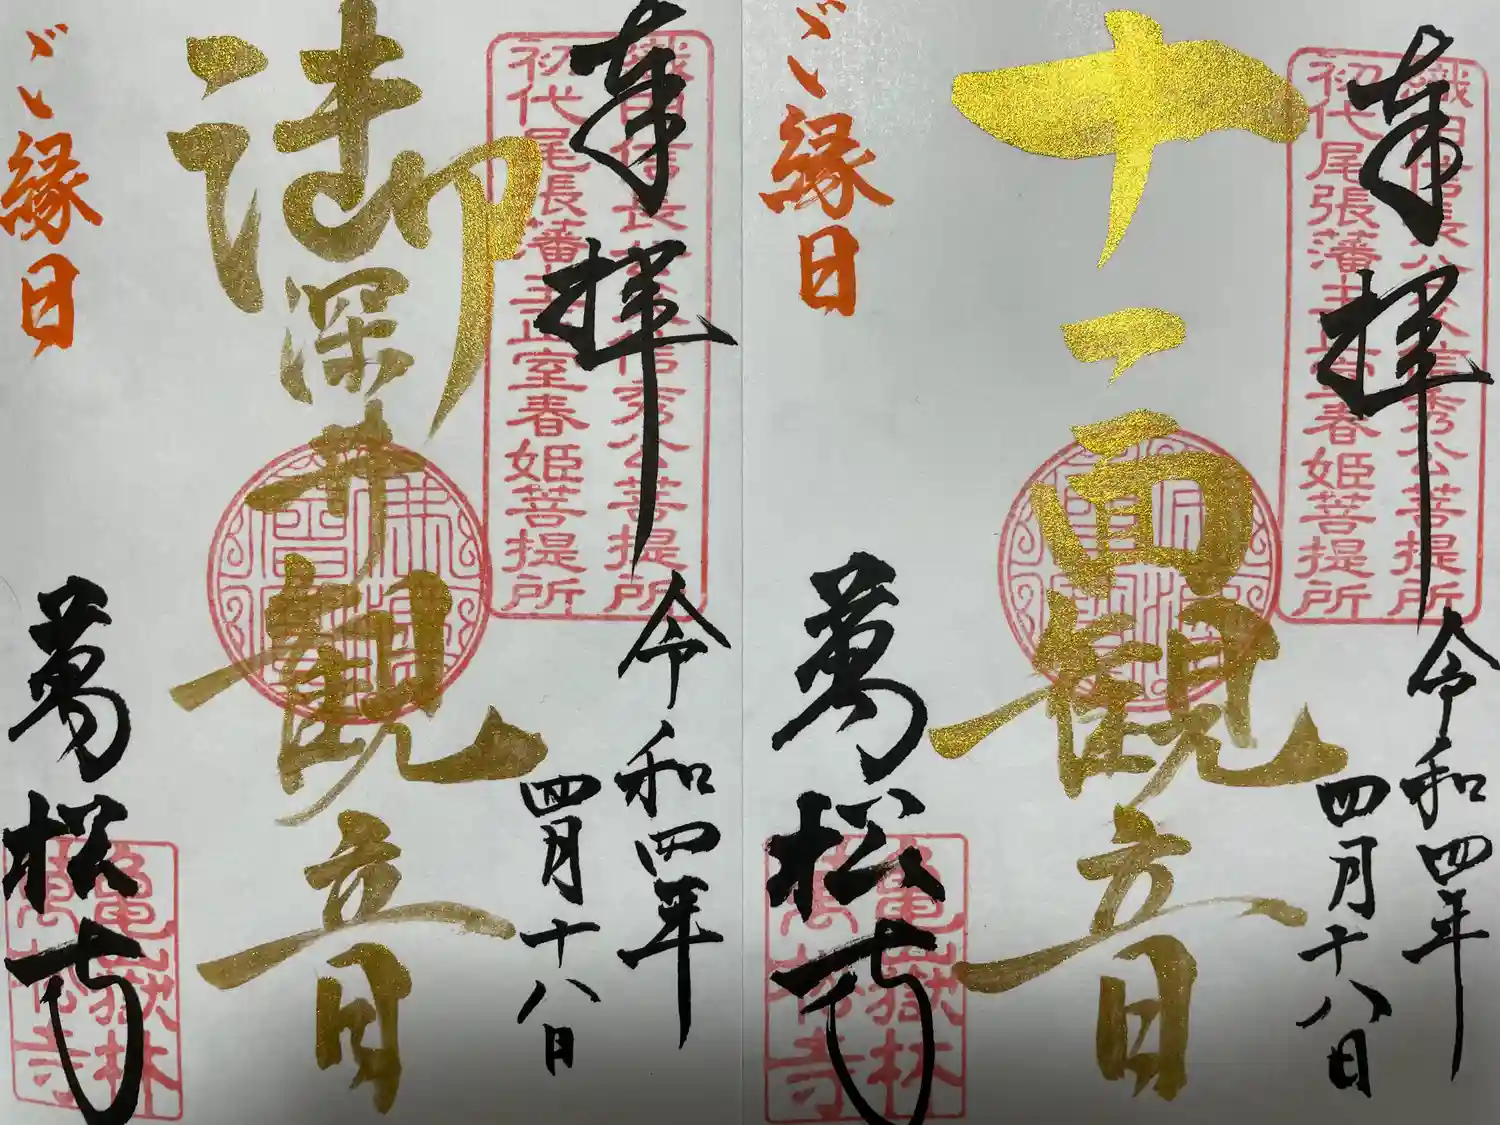 奉拝
織田信長公父信秀公菩提所
初代尾張藩主正室春姫菩提所
令和四年
四月十八日
御深井観音
ご縁日
萬松寺
亀嶽林
萬松寺
奉拝
織田信長公父信秀公菩提所
初代尾張藩主正室春姫菩提所
令和四年
四月十八日
十一面観音
ご縁日
萬松寺
亀嶽林
萬松寺